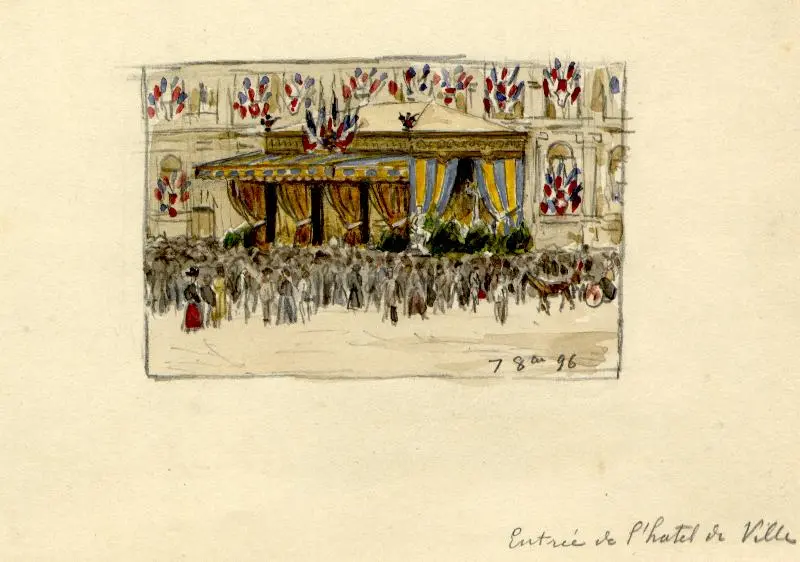 7 8bre 96
Entrée de l'hotel de Ville